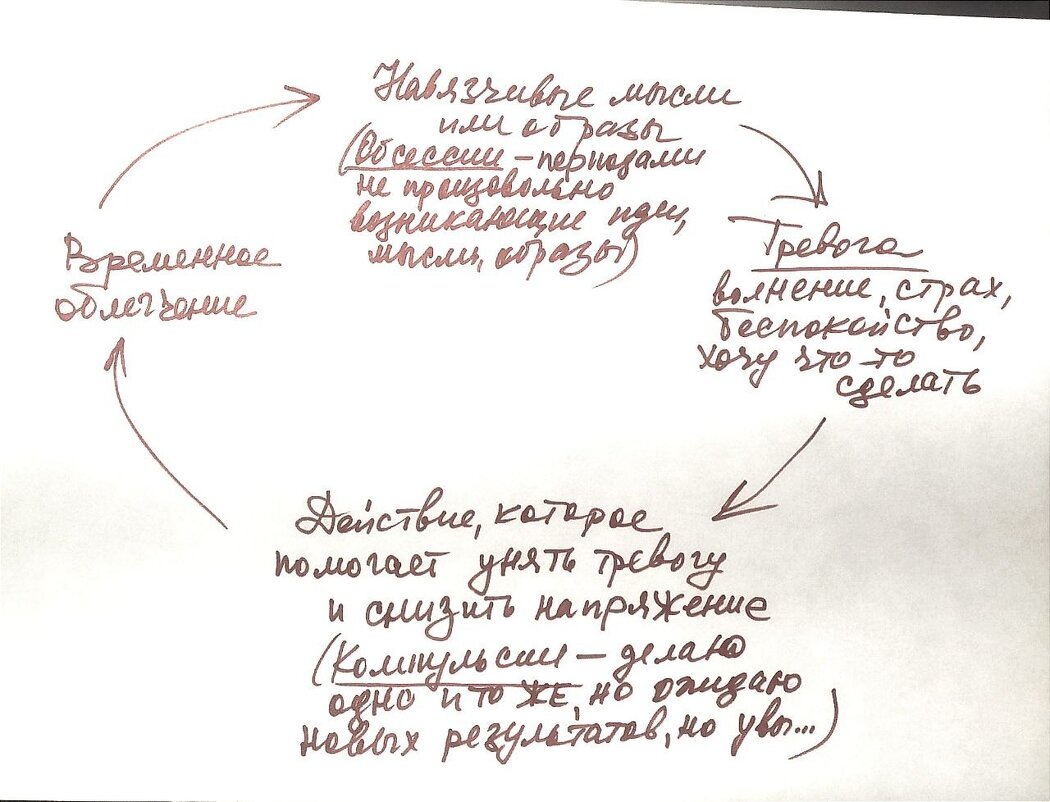 Навязчивые мысли
или образы
(Обсессии – периодами
не произвольно
возникающие идеи,
мысли, образы)
Тревога
волнение, страх,
беспокойство,
хочу что-то
сделать
Действие, которое
помогает унять тревогу
и снизить напряжение
(Компульсии – делаю
одно и то же, но ожидаю
новых результатов, но увы...)
Временное
облегчение